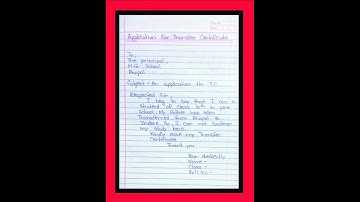 Application For Transfer Certificate
To,
The principal,
M.G School
Bhopal
Subject - An application for T.C
Respected Sir,
I beg to say that I am a
student of class 6th in your
school. My father has been
Transferred from Bhopal to
Indore So, I can not continue
my study here.
Kindly issue my Transfer
Certificate
Thank you
Your obediently
Name -
Class -
Roll No -